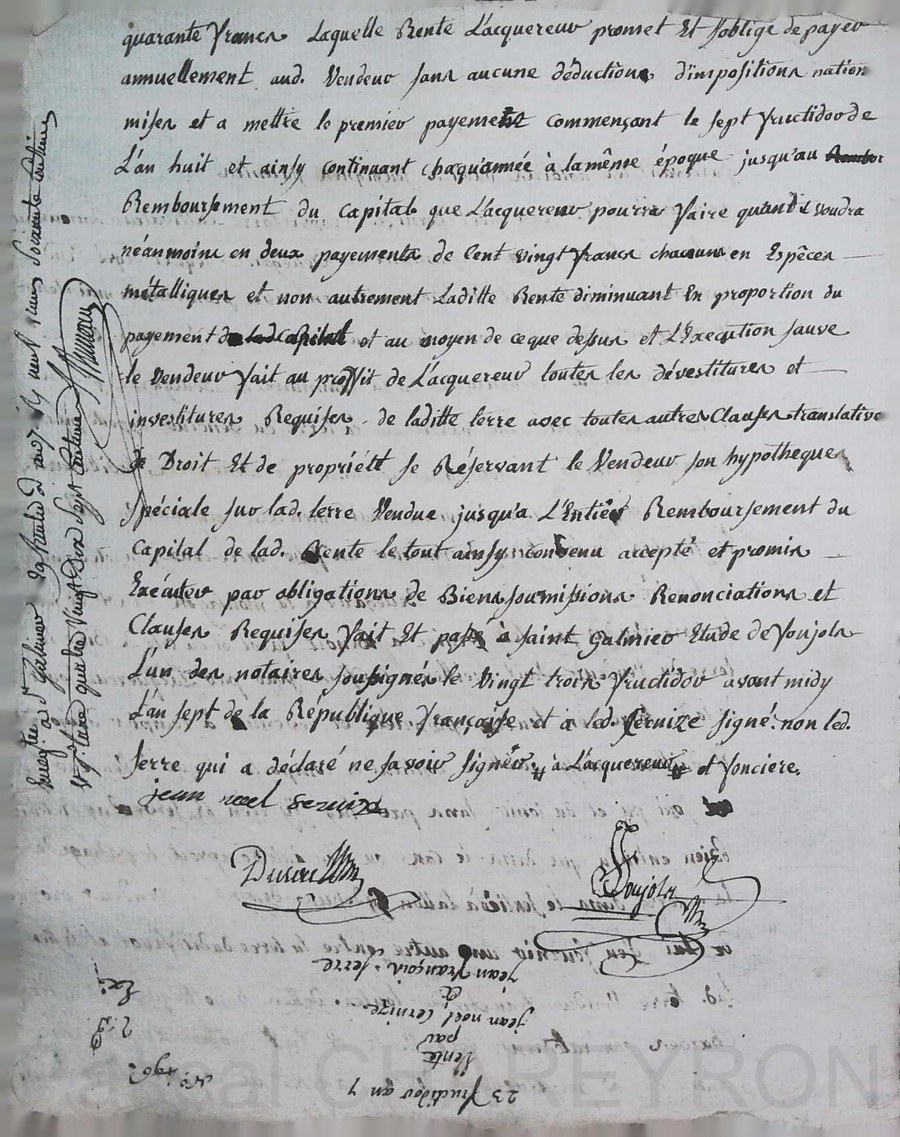 quarante francs laquelle Rente L'acquereur promet Et s'oblige de payer
annuellement aud. Vendeur sans aucune déductions d'impositions nation
mises et a mettre le premier payement commençant le sept fructidor de
L'an huit et ainsy continuant chaqu'année à la même époque jusqu'au Rembor
Remboursement du Capital que L'acquereur pourra faire quand il voudra
néanmoins en deux payements de Cent vingt francs chacuns en Espêces
métalliques et non autrement Laditte Rente diminuant En proportion du
payement de lad Capital et au moyen de ce que dessus et L'Execution sauve
le Vendeur fait au proffit de L'acquereur toutes les dévestitures et
investitures Requises de laditte terre avec toutes autres Clauses translative
de Droit Et de propriétt se Réservant le Vendeur son hypotheque
spéciale sur lad. terre Vendue jusqu'a L'Entier Remboursement du
Capital de lad. Rente le tout ainsy convenu accepté et promis
Exécuter par obligations de Biens soumissions Renonciations et
Clauses Requises fait Et passé à saint galmier Etude de Joujols
L'un des notaires soussignés le Vingt trois fructidor avant midy
L'an sept de la République françoise et a led. Sernize signé non led.
serre qui a déclaré ne savoir signer, # à L'acquereur # et fonciere.
jean noel sernize
Joujols
23 fructidor an 7
Vente
par
jean noel Sernize
à
jean françois serre